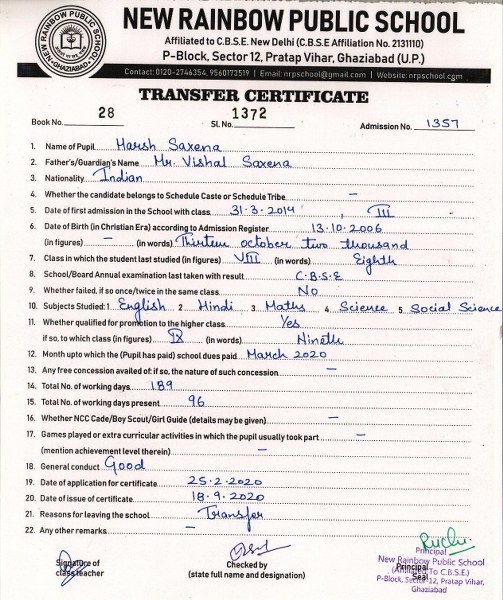 NEW RAINBOW PUBLIC SCHOOL
Affiliated to C.B.S.E. New Delhi (C.B.S.E Affiliation No. 2131110)
P-Block, Sector 12, Pratap Vihar, Ghaziabad (U.P.)
Contact: 0120-2746354, 9560173519 | Email: nrpschool@gmail.com | Website: nrpschool.com
TRANSFER CERTIFICATE
Book No. 28 Sl. No. 1372 Admission No. 1357
1. Name of Pupil Harsh Saxena
2. Father's/Guardian's Name Mr. Vishal Saxena
3. Nationality Indian
4. Whether the candidate belongs to Schedule Caste or Schedule Tribe –
5. Date of first admission in the School with class 31.3.2014, III
6. Date of Birth (in Christian Era) according to Admission Register 13.10.2006
(in figures) – (in words) Thirteen october two thousand
7. Class in which the student last studied (in figures) VIII (in words) Eighth
8. School/Board Annual examination last taken with result C.B.S.E
9. Whether failed, if so once/twice in the same class No
10. Subjects Studied: 1 English 2 Hindi 3 Maths 4 Science 5. Social Science
11. Whether qualified for promotion to the higher class Yes
if so, to which class (in figures) IX (in words) Nineth
12. Month upto which the (Pupil has paid) school dues paid March 2020
13. Any free concession availed of: if so, the nature of such concession –
14. Total No. of working days 189
15. Total No. of working days present 96
16. Whether NCC Cade/Boy Scout/Girl Guide (details may be given) –
17. Games played or extra curricular activities in which the pupil usually took part –
(mention achievement level therein) –
18. General conduct Good
19. Date of application for certificate 25.2.2020
20. Date of issue of certificate 18.9.2020
21. Reasons for leaving the school Transfer
22. Any other remarks –
Signature of
class teacher
Checked by
(state full name and designation)
Principal
Seal
Principal
New Rainbow Public School
(Affiliated To C.B.S.E.)
P-Block, Sector-12, Pratap Vihar,
Ghaziabad